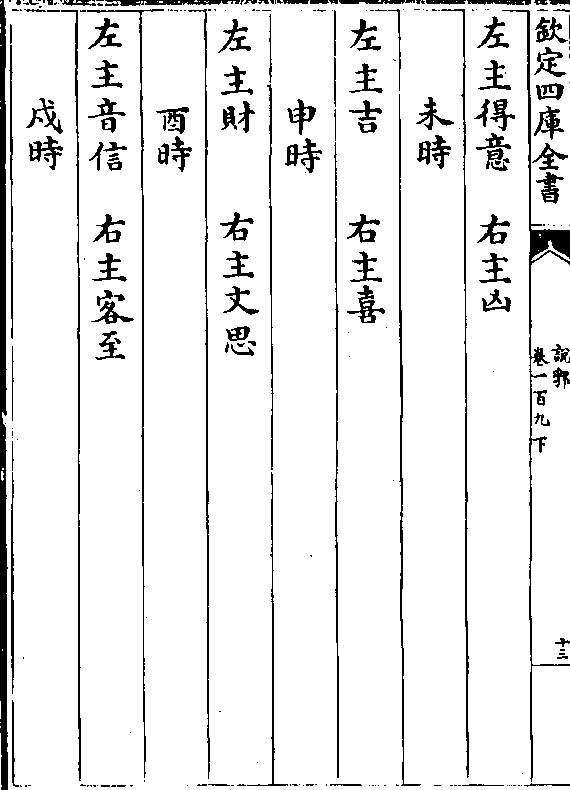 欽定四庫全書
說郛
卷一百九下
十三
左主得意　右主凶
未時
左主吉　右主喜
申時
左主財　右主文思
酉時
左主音信　右主客至
戌時